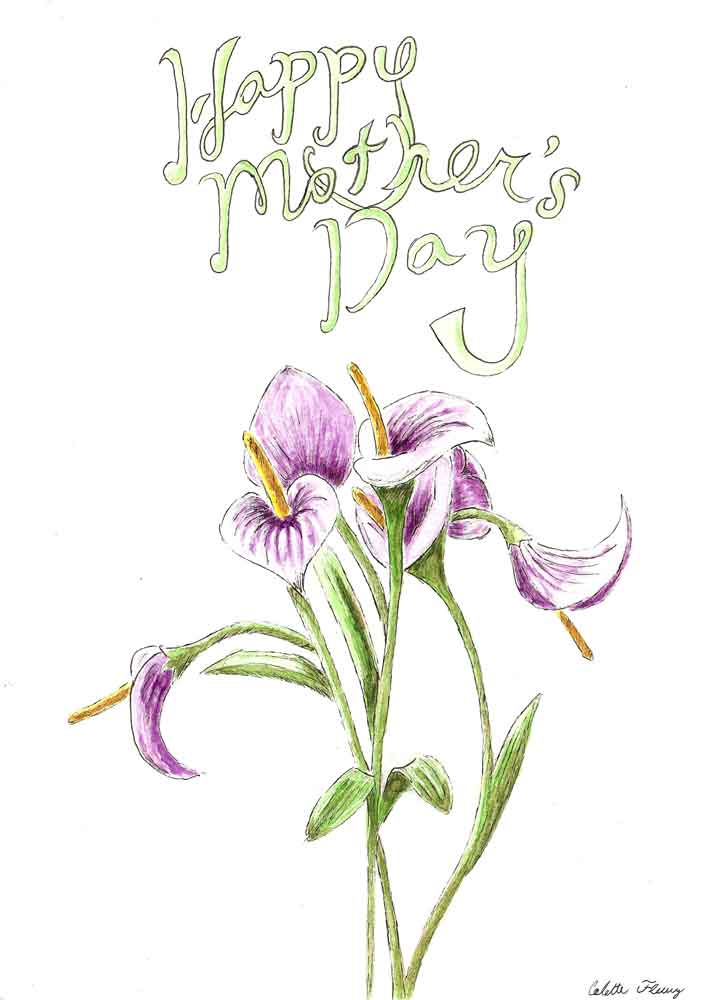 Happy
Mother's
Day
Colette Fleury